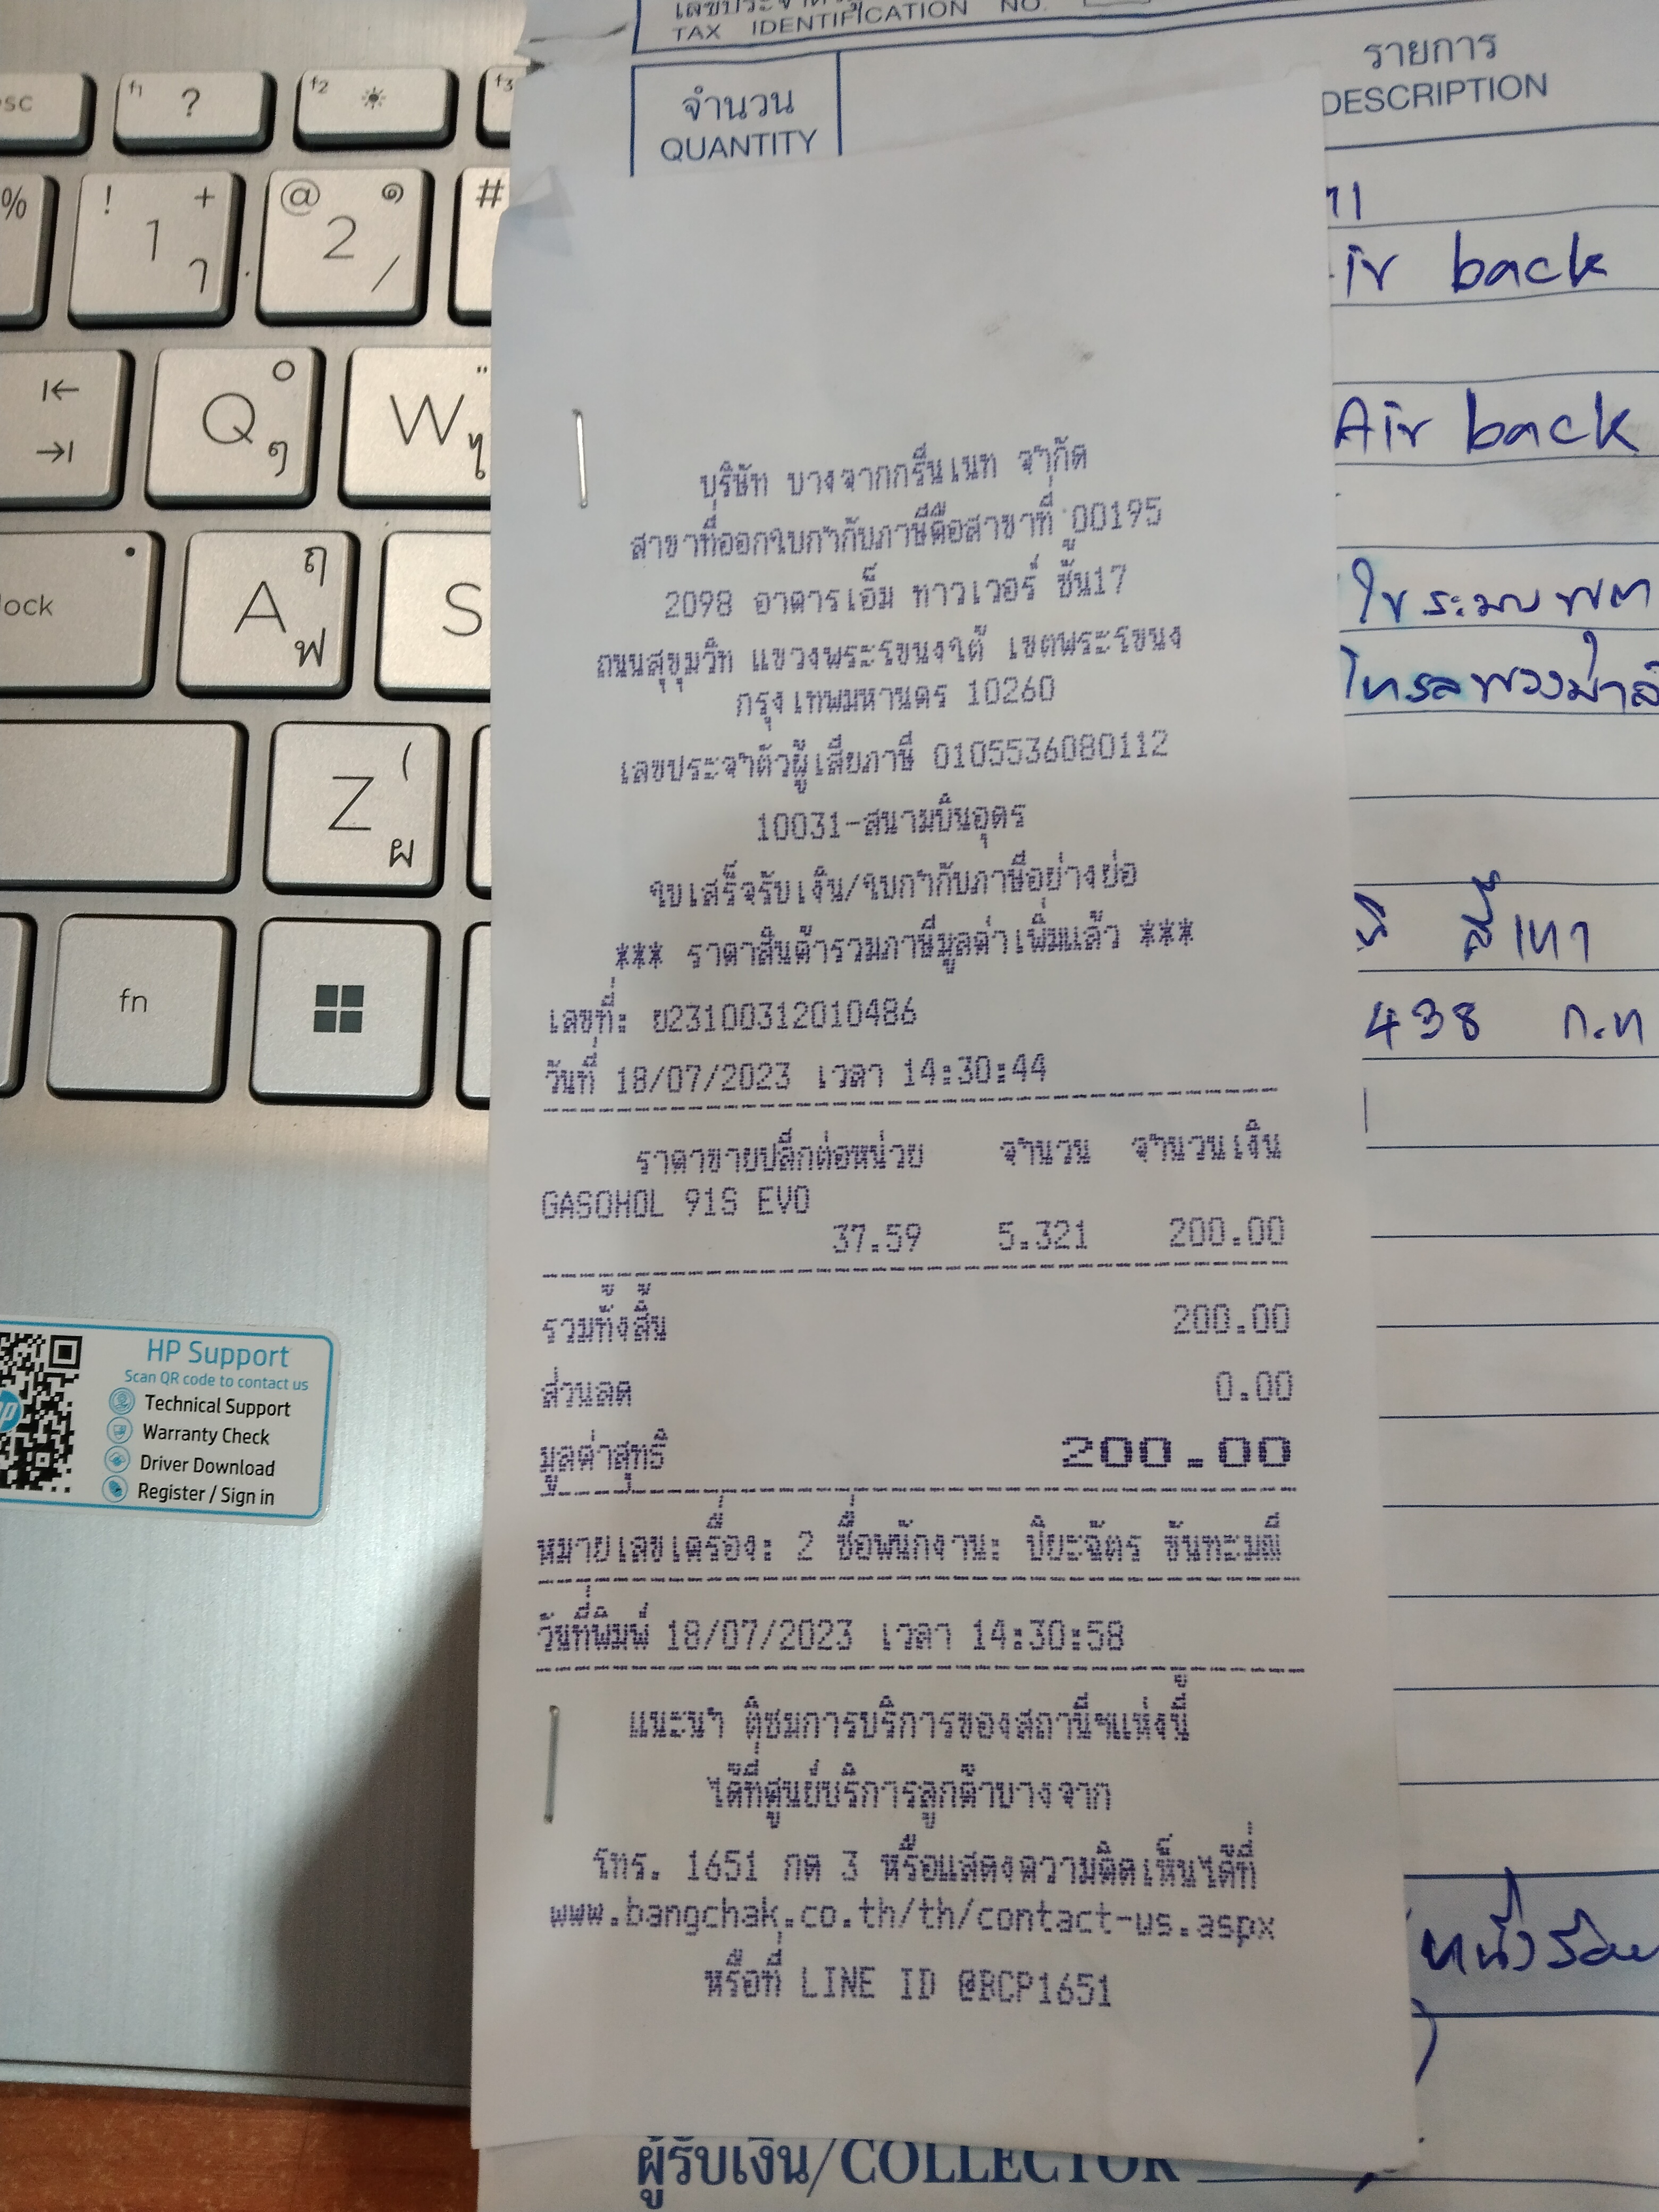 TAX IDENTIFICATION NO.
จำนวน
QUANTITY
รายการ
DESCRIPTION
back
Air back
438 ก.ท
บริษัท บางจากกรีนเนท จำกัด
สาขาที่ออกใบกำกับภาษีคือสาขาที่ 00195
2098 อาคารเอ็ม ทาวเวอร์ ชั้น17
ถนนสุขุมวิท แขวงพระโขนงใต้ เขตพระโขนง
กรุงเทพมหานคร 10260
เลขประจำตัวผู้เสียภาษี 0105536080112
10031-สนามบินอุดร
ใบเสร็จรับเงิน/ใบกำกับภาษีอย่างย่อ
*** ราคาสินค้ารวมภาษีมูลค่าเพิ่มแล้ว ***
เลขที่: ย23100312010486
วันที่ 18/07/2023 เวลา 14:30:44
ราคาขายปลีกต่อหน่วย จำนวน จำนวนเงิน
GASOHOL 91S EVO
37.59 5.321 200.00
รวมทั้งสิ้น 200.00
ส่วนลด 0.00
มูลค่าสุทธิ 200.00
หมายเลขเครื่อง: 2 ชื่อพนักงาน: ปิยะฉัตร ขันทะมณี
วันที่พิมพ์ 18/07/2023 เวลา 14:30:58
แนะนำ ติชมการบริการของสถานีฯแห่งนี้
ได้ที่ศูนย์บริการลูกค้าบางจาก
โทร. 1651 กด 3 หรือแสดงความคิดเห็นได้ที่
www.bangchak.co.th/th/contact-us.aspx
หรือที่ LINE ID @BCP1651
ผู้รับเงิน/COLLECTOR
esc
f1 ?
f2
f3
%
! + 1 ๅ
@ ๑ 2 /
#
Q ๐ ๆ
W " ไ
lock
A ฤ ฟ
S
Z ( ผ
fn
HP Support
Scan QR code to contact us
Technical Support
Warranty Check
Driver Download
Register / Sign in